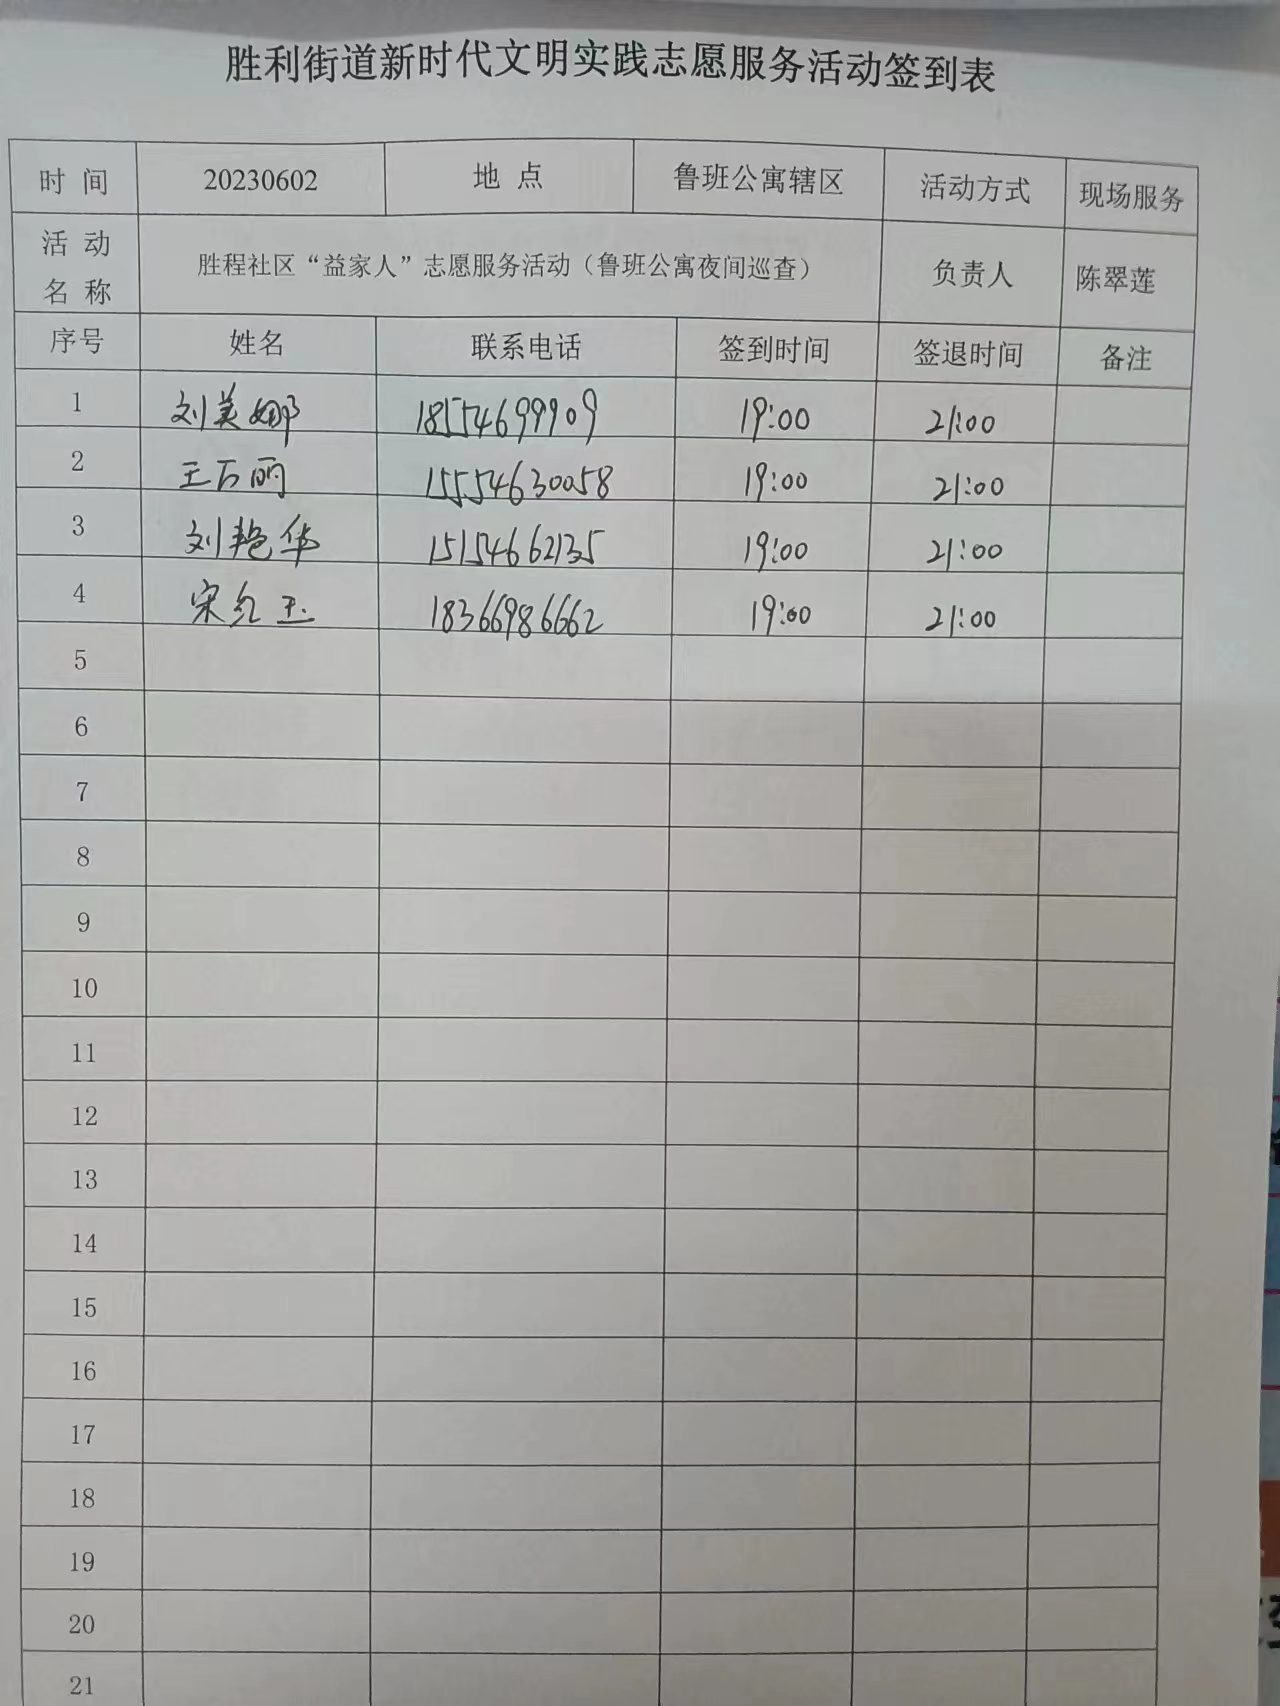 胜利街道新时代文明实践志愿服务活动签到表
时 间 20230602 地 点 鲁班公寓辖区 活动方式 现场服务
活 动 名 称 胜程社区“益家人”志愿服务活动（鲁班公寓夜间巡查） 负责人 陈翠莲
序号 姓名 联系电话 签到时间 签退时间 备注
1 刘美娜 18554699909 19:00 21:00
2 王万丽 15554630058 19:00 21:00
3 刘艳华 15154662135 19:00 21:00
4 宋红玉 18366986662 19:00 21:00
5
6
7
8
9
10
11
12
13
14
15
16
17
18
19
20
21